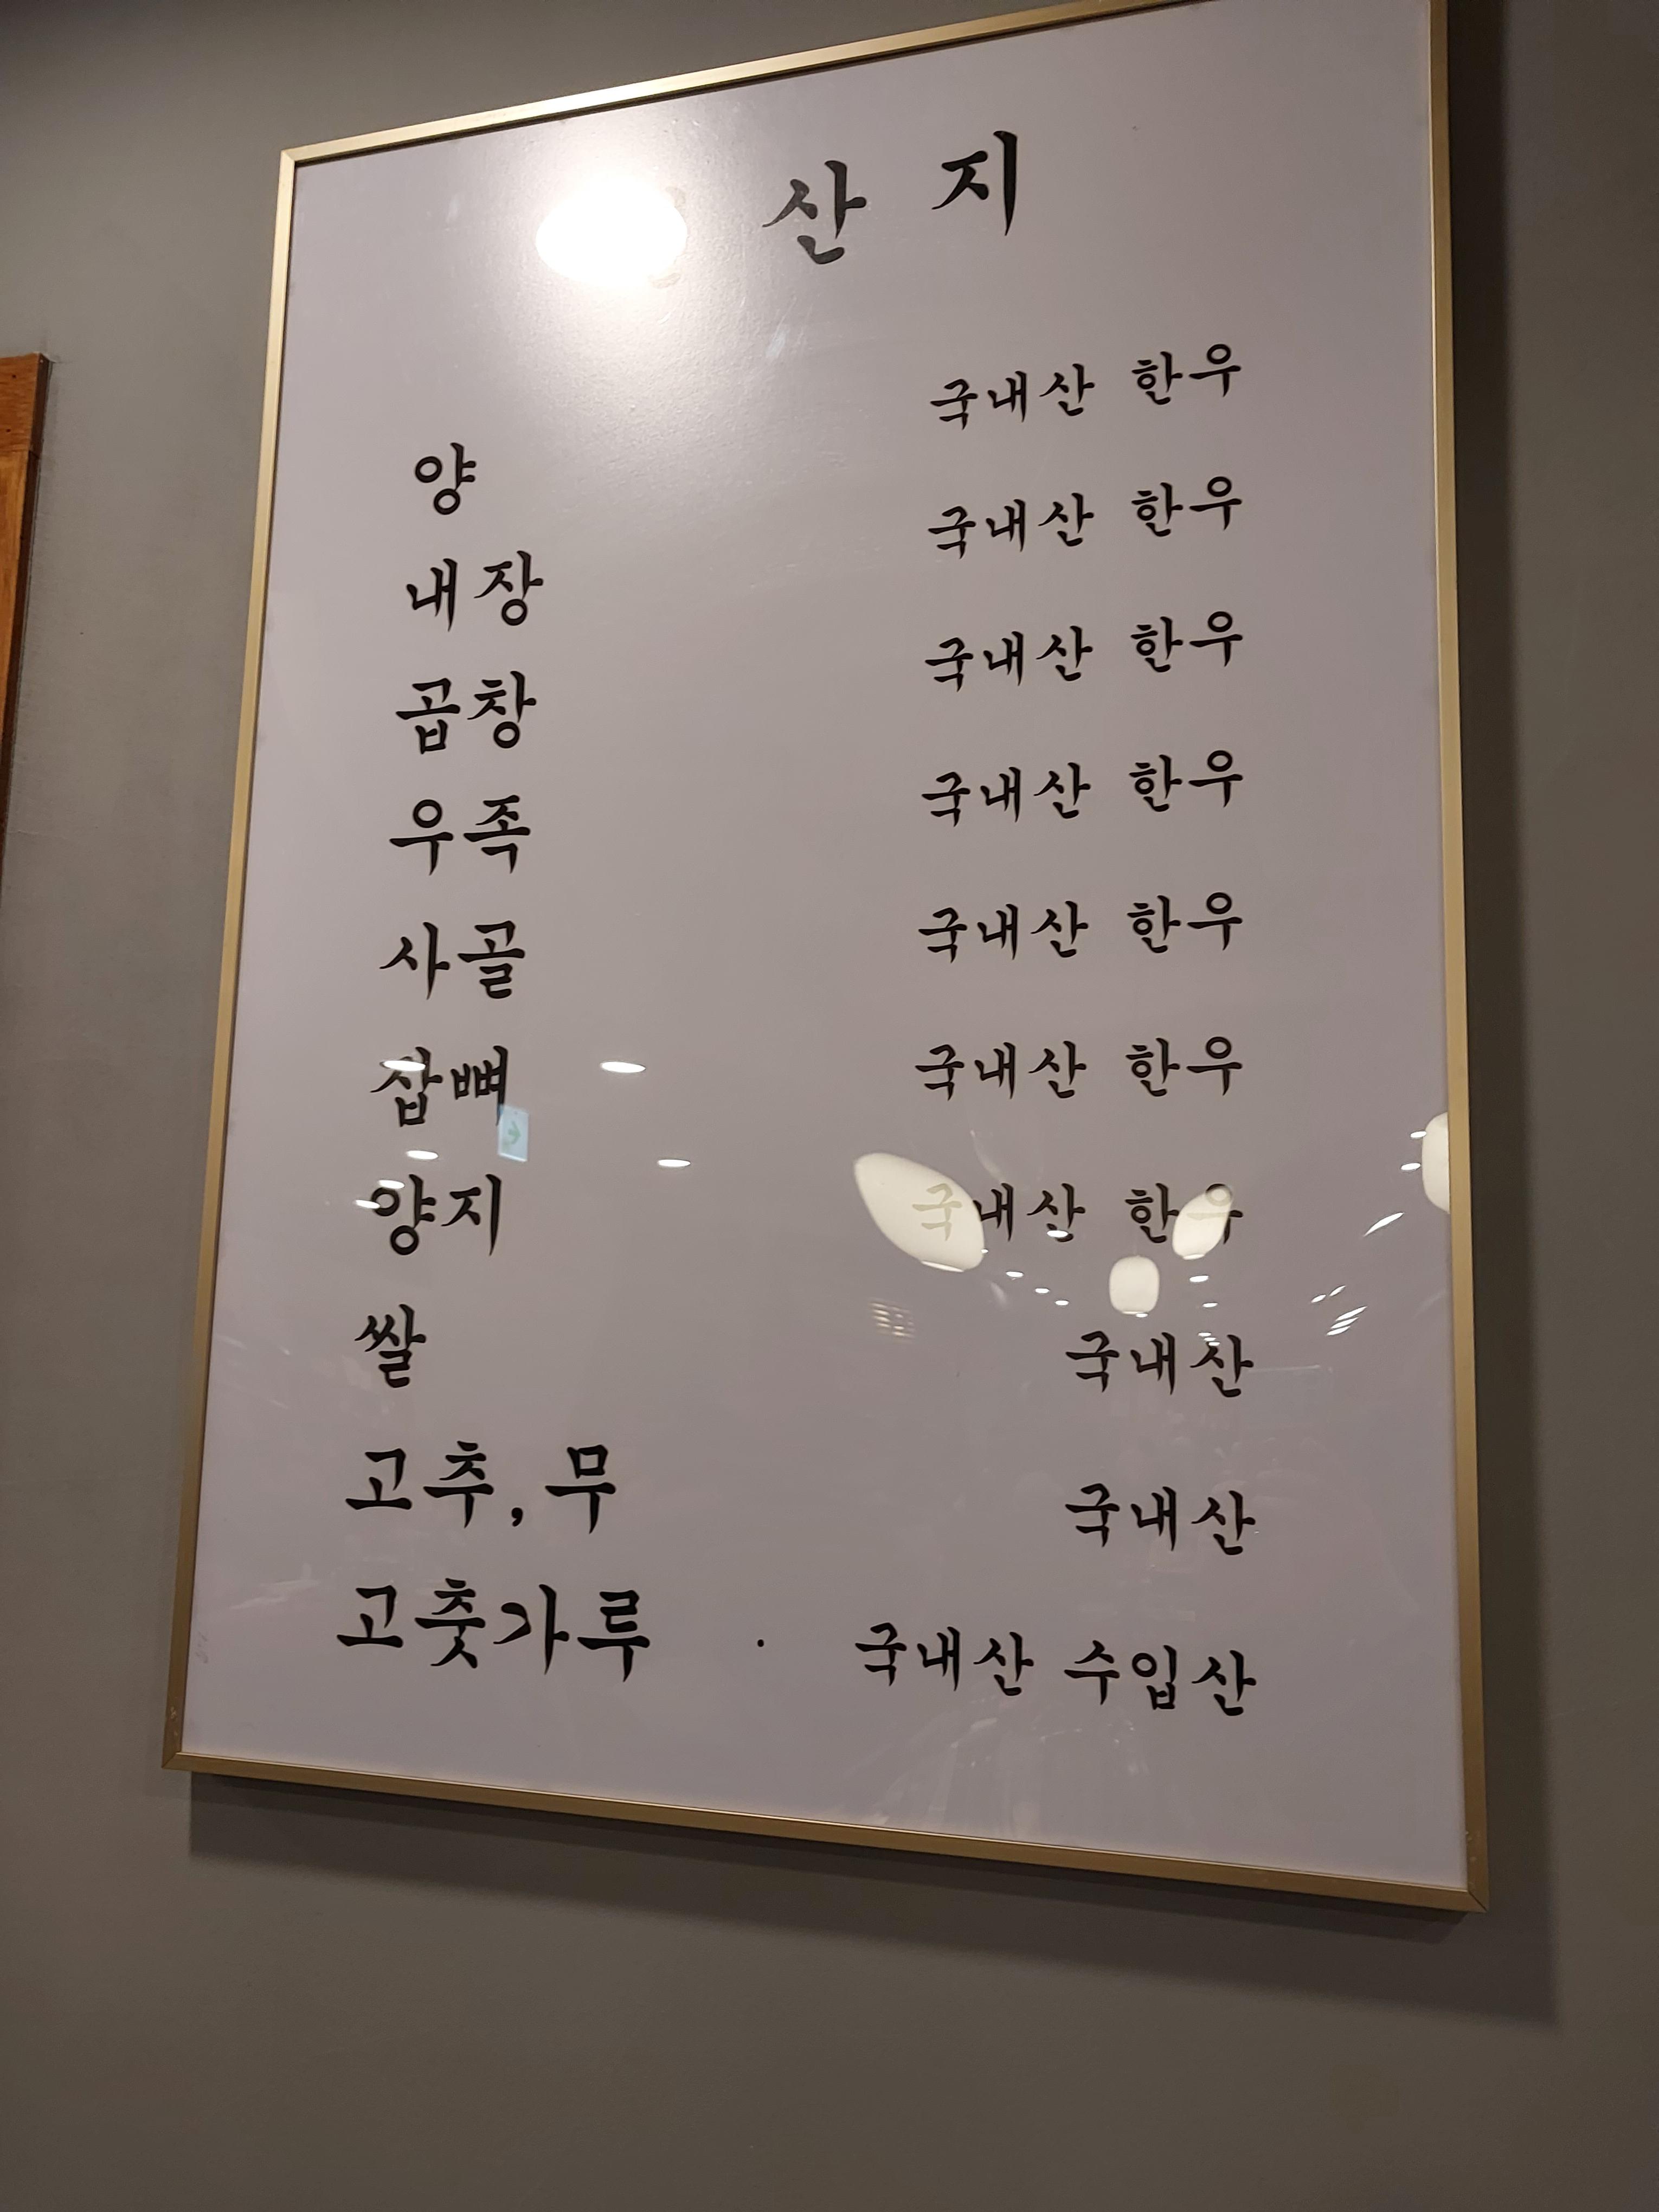 산 지
양 국내산 한우
내장 국내산 한우
곱창 국내산 한우
우족 국내산 한우
사골 국내산 한우
잡뼈 국내산 한우
양지 국내산 한우
쌀 국내산
고추, 무 국내산
고춧가루 · 국내산 수입산